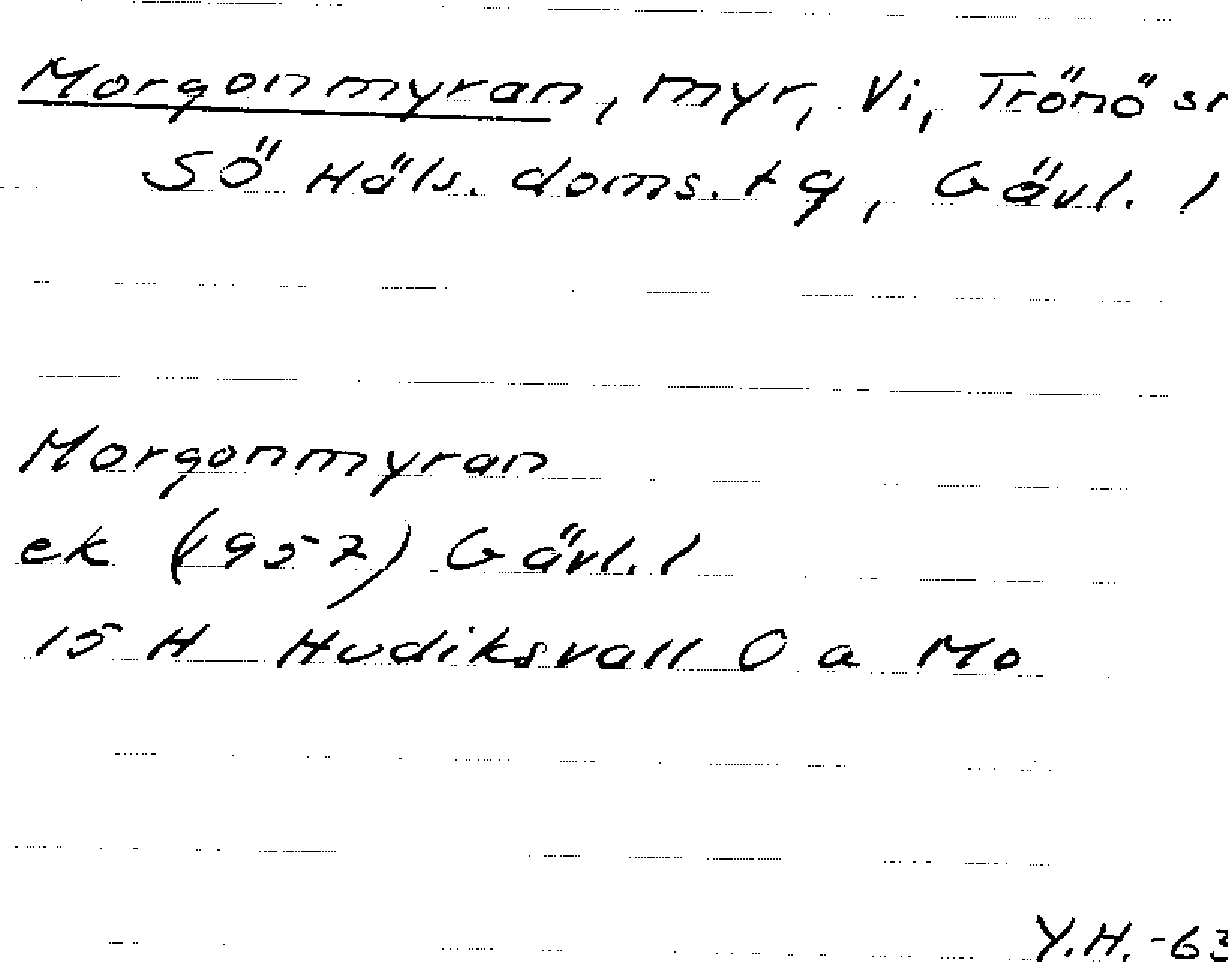 Morgonmyran, myr, Vi, Trönö sn
SÖ Häls. doms.tg, Gävl. l
Morgonmyran
ek (1957) Gävl. l
15 H Hudiksvall O a Mo
Y.H. -63